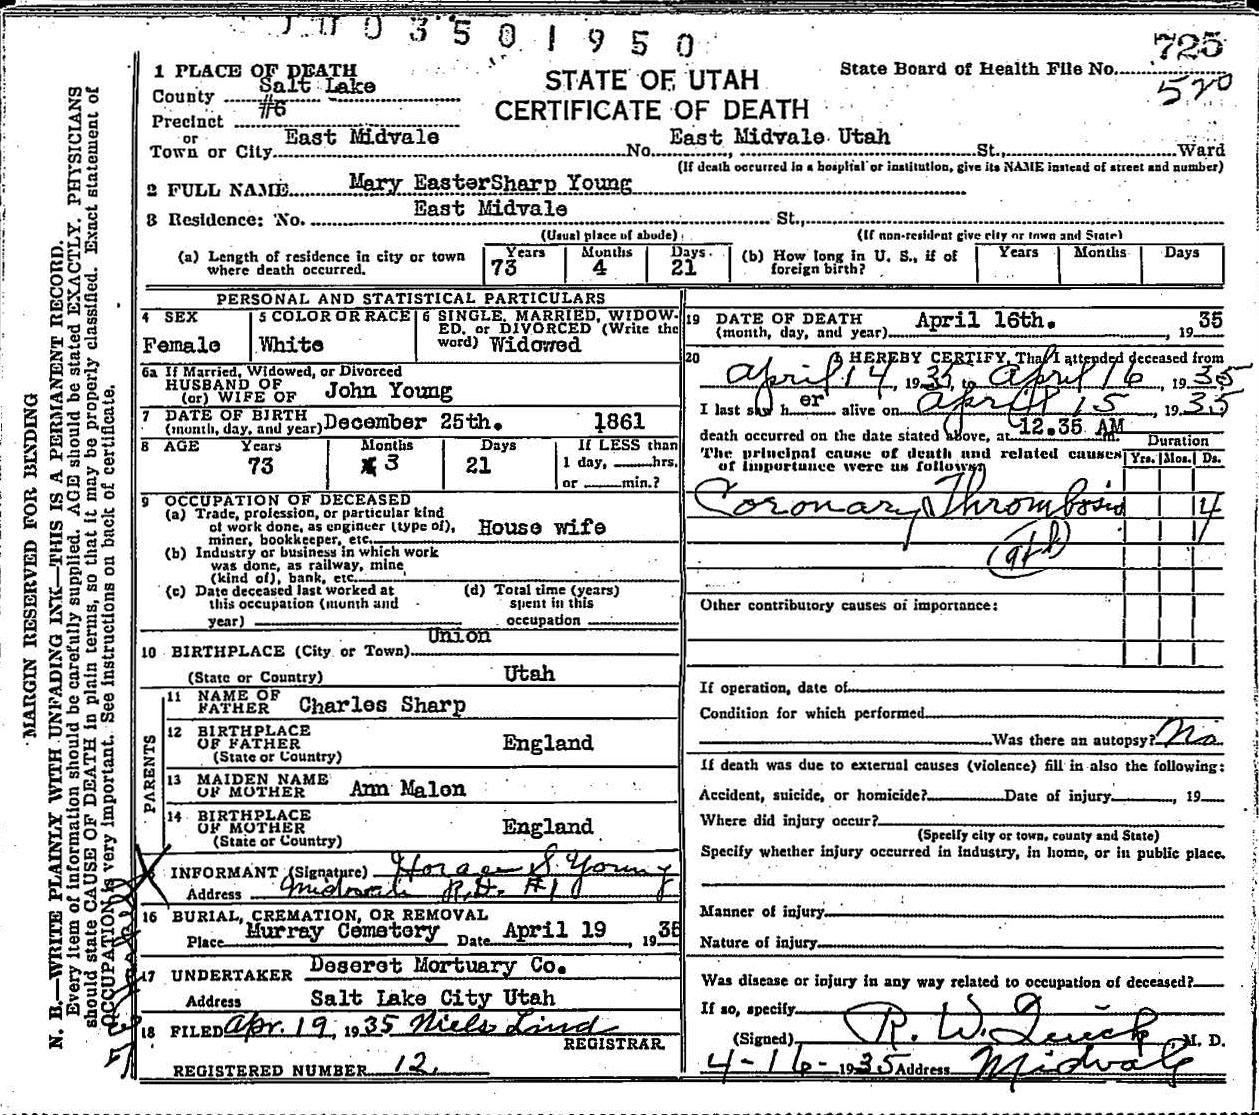 0 3 5 0 1 9 5 0
725
520
1 PLACE OF DEATH
STATE OF UTAH
CERTIFICATE OF DEATH
State Board of Health File No.
County Salt Lake
Precinct #6
or
Town or City East Midvale No. East Midvale Utah St., Ward
(If death occurred in a hospital or institution, give its NAME instead of street and number)
2 FULL NAME Mary EasterSharp Young
3 Residence: No. East Midvale St.,
(Usual place of abode) (If non-resident give city or town and State)
(a) Length of residence in city or town where death occurred. Years 73 Months 4 Days 21
(b) How long in U. S., if of foreign birth? Years Months Days
PERSONAL AND STATISTICAL PARTICULARS
4 SEX Female
5 COLOR OR RACE White
6 SINGLE, MARRIED, WIDOWED, or DIVORCED (Write the word) Widowed
6a If Married, Widowed, or Divorced
HUSBAND OF
(or) WIFE OF John Young
7 DATE OF BIRTH
(month, day, and year) December 25th. 1861
8 AGE Years 73 Months 3 Days 21 If LESS than 1 day, hrs. or min.?
9 OCCUPATION OF DECEASED
(a) Trade, profession, or particular kind
of work done, as engineer (type of),
miner, bookkeeper, etc. House wife
(b) Industry or business in which work
was done, as railway, mine
(kind of), bank, etc.
(c) Date deceased last worked at
this occupation (month and
year)
(d) Total time (years)
spent in this
occupation
10 BIRTHPLACE (City or Town) Union
(State or Country) Utah
PARENTS
11 NAME OF FATHER Charles Sharp
12 BIRTHPLACE OF FATHER (State or Country) England
13 MAIDEN NAME OF MOTHER Ann Malon
14 BIRTHPLACE OF MOTHER (State or Country) England
INFORMANT (Signature) Horace S Young
Address Midvale R.H. #1
16 BURIAL, CREMATION, OR REMOVAL
Place Murray Cemetery Date April 19, 1935
17 UNDERTAKER Deseret Mortuary Co.
Address Salt Lake City Utah
18 FILED Apr. 19, 1935 Niels Lind
REGISTRAR.
REGISTERED NUMBER 12.
19 DATE OF DEATH
(month, day, and year) April 16th. , 1935
20 I HEREBY CERTIFY, That I attended deceased from
April 14, 1935, to April 16, 1935
I last saw her alive on April 15, 1935
death occurred on the date stated above, at 12.35 AM m.
Duration
The principal cause of death and related causes
of importance were as follows: Yrs. Mos. Ds.
Coronary Thrombosis 4
Other contributory causes of importance:
If operation, date of
Condition for which performed
Was there an autopsy? No
If death was due to external causes (violence) fill in also the following:
Accident, suicide, or homicide? Date of injury , 19
Where did injury occur?
(Specify city or town, county and State)
Specify whether injury occurred in industry, in home, or in public place.
Manner of injury
Nature of injury
Was disease or injury in any way related to occupation of deceased?
If so, specify
(Signed) R. W. Quick, M. D.
4-16-1935 Address Midvale
MARGIN RESERVED FOR BINDING
N. B.—WRITE PLAINLY WITH UNFADING INK—THIS IS A PERMANENT RECORD.
Every item of information should be carefully supplied. AGE should be stated EXACTLY. PHYSICIANS
should state CAUSE OF DEATH in plain terms, so that it may be properly classified. Exact statement of
OCCUPATION is very important. See instructions on back of certificate.